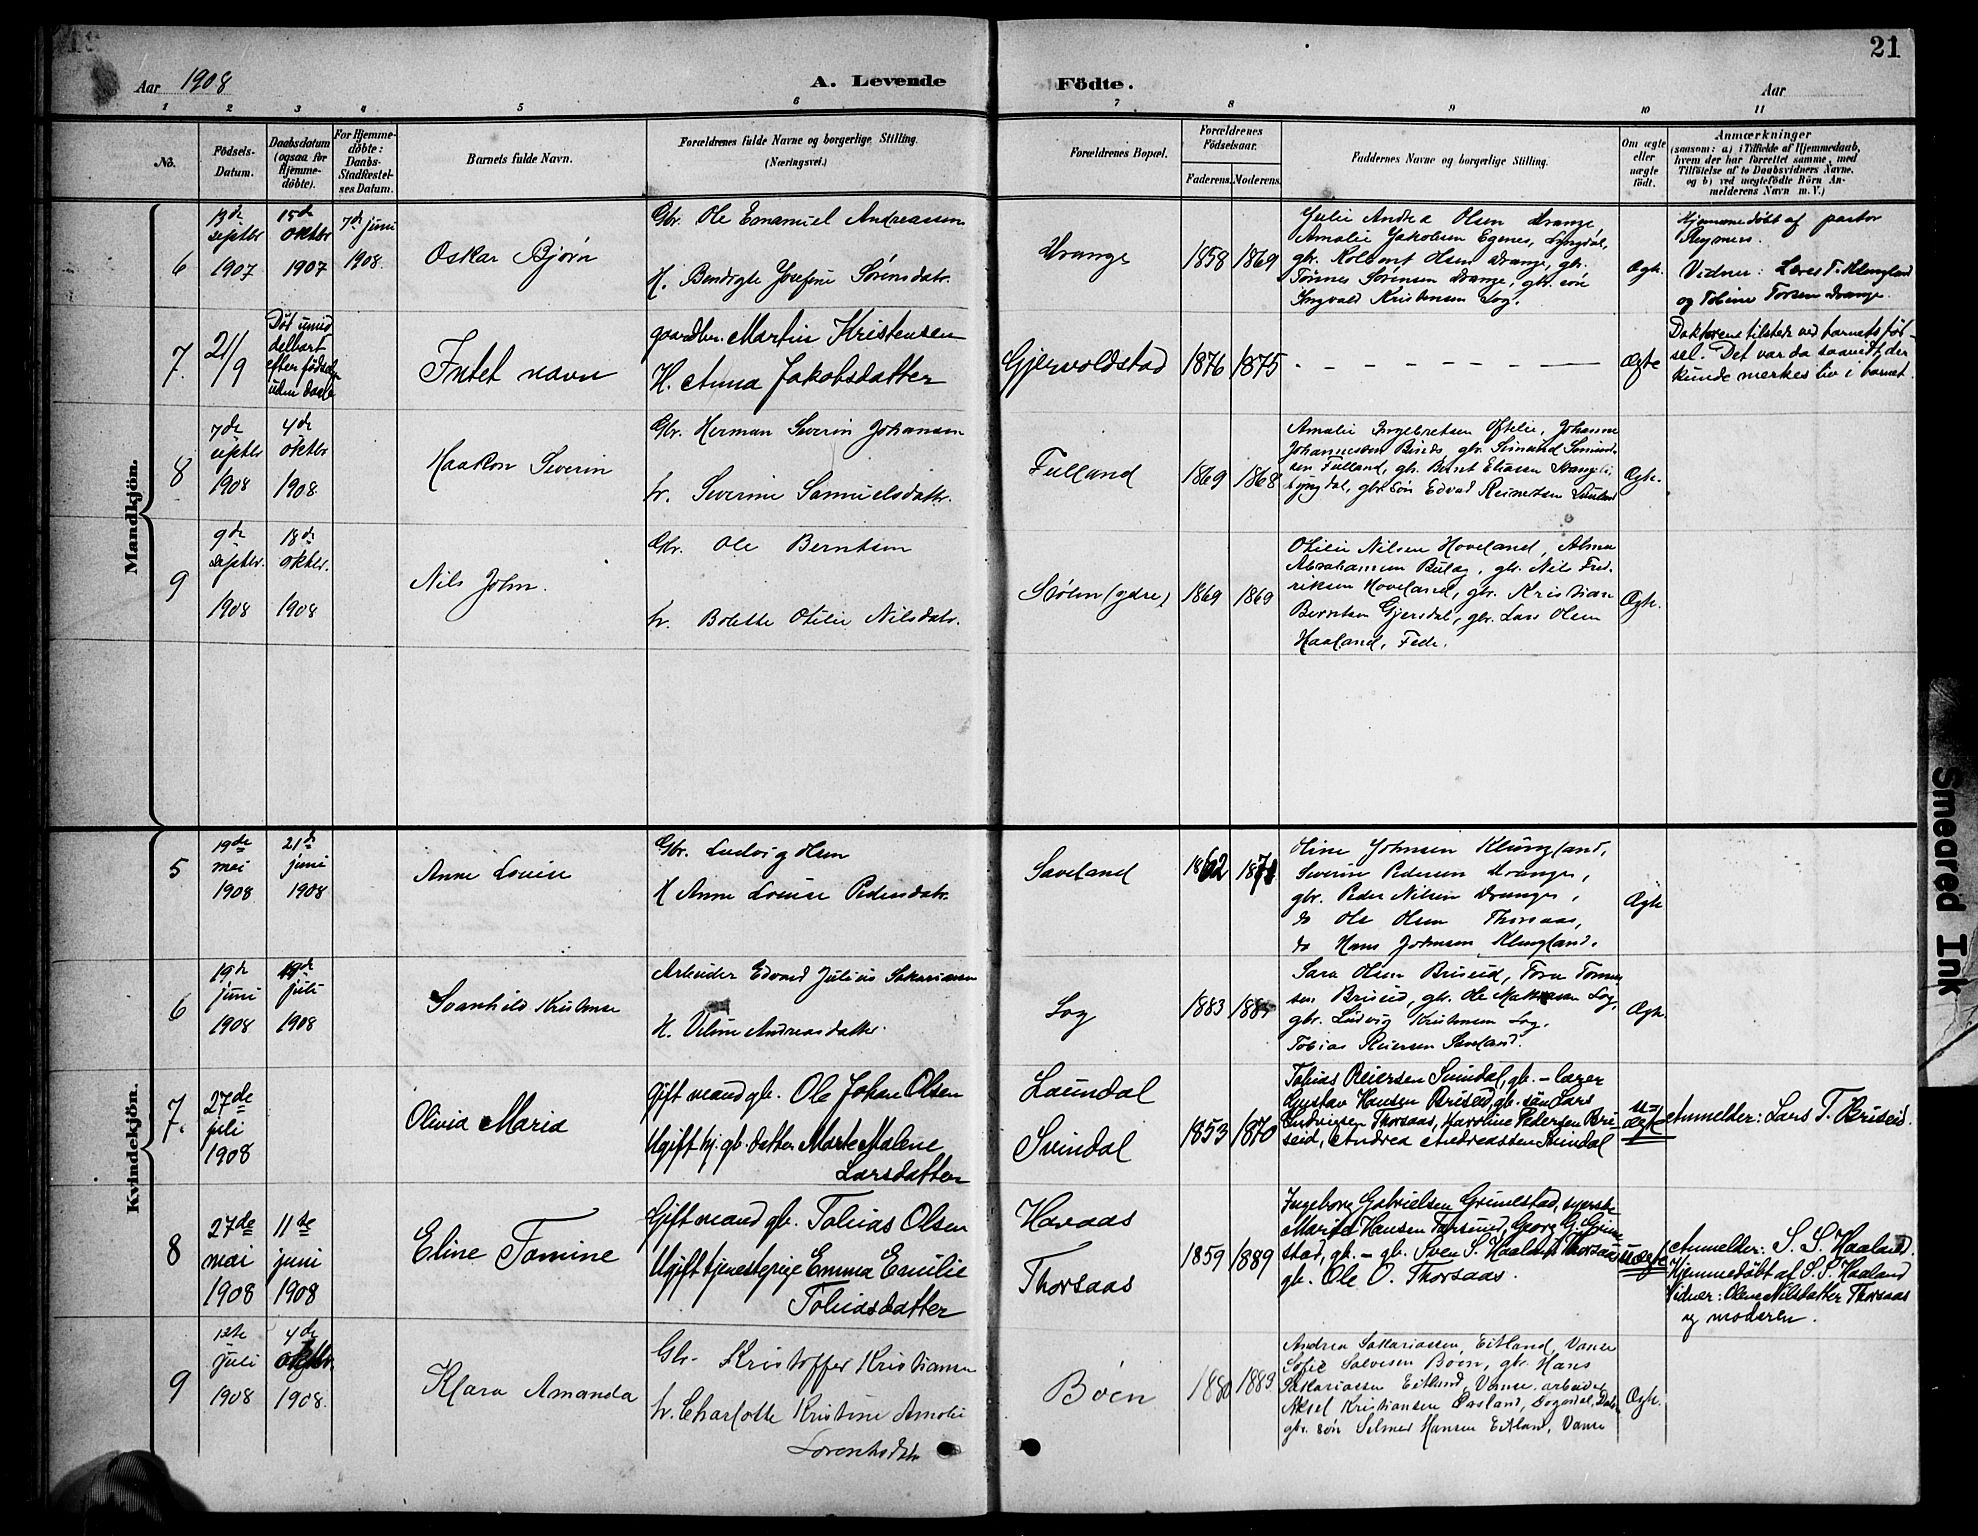 Aar 1908
A. Levende Födte.
Aar
21
1 2 3 4 5 6 7 8 9 10 11
No.
Födsels-
Datum.
Daabsdatum
(ogsaa for
Hjemme-
döbte).
For Hjemme-
döbte:
Daabs-
Stadfæstel-
ses Datum.
Barnets fulde Navn.
Forældrenes fulde Navne og borgerlige Stilling.
(Næringsvei.)
Forældrenes Bopæl.
Forældrenes
Födselsaar.
Faderens. Moderens.
Faddernes Navne og borgerlige Stilling.
Om ægte
eller
uægte
födt.
Anmærkninger
(saasom: a) i Tilfælde af Hjemmedaab,
hvem der har forrettet samme, med
Tilföielse af to Daabsvidners Navne,
og b) ved uægtefödte Börn An-
melderens Navn m. V.)
Mandkjön.
6
septbr
1907
15de
oktbr
1907
7de juni
1908.
Oskar Bjørn
Gbr. Ole Emanuel Andreassen
H. Josefine Sørensdatr.
Drange
1858 1869
Julie Andrea Olsen Drange
Amalie Jakobsen Egenes, Lyngdal,
gbr. Kolbent Olsen Drange, gbr.
Tønnes Sørensen Drange, gbr. søn
Ingvald Kristensen Log.
Ægte.
Hjemmedøbt af pastor
Reymers.
Vidner: Lars T. Klungland
og Tobine Torsen Drange.
7.
21/9
Død umid
delbart
efter fødsel
uden daab
Intet navn
gaardbr. Martin Kristensen
H. Anna Jakobsdatter
Gjervoldstad
1876 1875
- - - - - - - -
Ægte
Doktoren tilstede ved barnets fød-
sel. Det var da saavidt der
kunde merkes liv i barnet.
8
7de
septbr
1908
4de
oktbr
1908.
Haakon Severin
Gbr. Herman Severin Johansen
h. Severine Samuelsdatr.
Fuland
1869 1868
Amalie Ingebretsen Oftelie, Johanne
Johannessen gbr.
sen Fuland, gbr. Bernt Eliasen
Lyngdal, gbr. søn Edvard
Ægte.
9
9de
septbr.
1908
18de
oktbr.
1908
Nils John.
Gbr. Ole Berntsen
h. Bolette Otilie Nilsdatr.
Stølen (ydre)
1869 1869
Otilie Nilsen Hoveland, Alma
Abrahamsen Bulag, gbr. Nils Fred-
riksen Hoveland, gbr. Kristian
Berntsen Gjersdal, gbr. Lars Olsen
Haaland, Fede.
Ægte.
Kvindekjön.
5
19de
mai
1908
21de
juni
1908
Anne Louise
Gbr. Ludvig Olsen
H Anne Louise Pedersdatr.
Saveland
1862
Oline Johnsen Klungland,
Severine Pedersen Drange,
gbr. Peder Nilsen Drange,
do Ole Olsen Thorsaas,
do Hans Johnsen Klungland.
Ægte
6
19de
juni
1908
19de
juli
1908
Svanhild Kristense
Arbeider Edvard Julius Sakariassen
H. Veline Andreasdatter.
Log
1883
Sara Olsen Briseid, Tora Tønnes-
sen Briseid, gbr. Ole Mathiasen Log,
gbr. Ludvig Kristensen Log,
Tobias Reiersen Saveland.
Ægte.
7.
27de
juli
1908
Olivia Maria
Gift mand gb. Ole Johan Olsen
Ugift hj. gb. datter Marte Malene
Larsdatter
Laundal
Svindal
1853 1870
Tobias Reiersen Svindal, gb. - lærer
Gustav Hansen Briseid, gb. søn Lars
Ludvigsen Thorsaas, Karoline Pedersen Bri-
seid, Andrea Andreassen Svindal
u=
ægte
Anmelder: Lars T. Briseid.
8
27de
mai
1908
11te
juni
1908
Eline Tomine
Gift mand gb. Tobias Olsen
Ugift tjenestepige Emma Emilie
Tobiasdatter
Havaas
Thorsaas
1859 1889
Ingeborg Gabrielsen Grimestad, syerske
Marita Hansen Farsund, Georg G. Grime
stad, gk. - gb. Sven S. Haaland Thorsaas
gb. Ole O. Thorsaas.
uægte
Anmelder: S. S. Haaland.
Hjemmedøbt af S. S. Haaland
Vidner: Olene Nilsdatter Thorsaas
og moderen.
9
12te
juli
1908
4de
oktbr.
1908.
Klara Amanda
Gbr. Kristoffer Kristiansen
h. Charlotte Kristine Amalie
Lorentsdatr
Bøen
1880 1883
Andrea Sakariassen, Eitland, Vanse
Sofie Salvesen Bøen, gbr. Hans
Sakariassen Eitland, Vanse, arbeider
Aksel Kristiansen
gbr. søn Selmer Hansen Eitland, Vanse
Ægte.
Smeared Ink